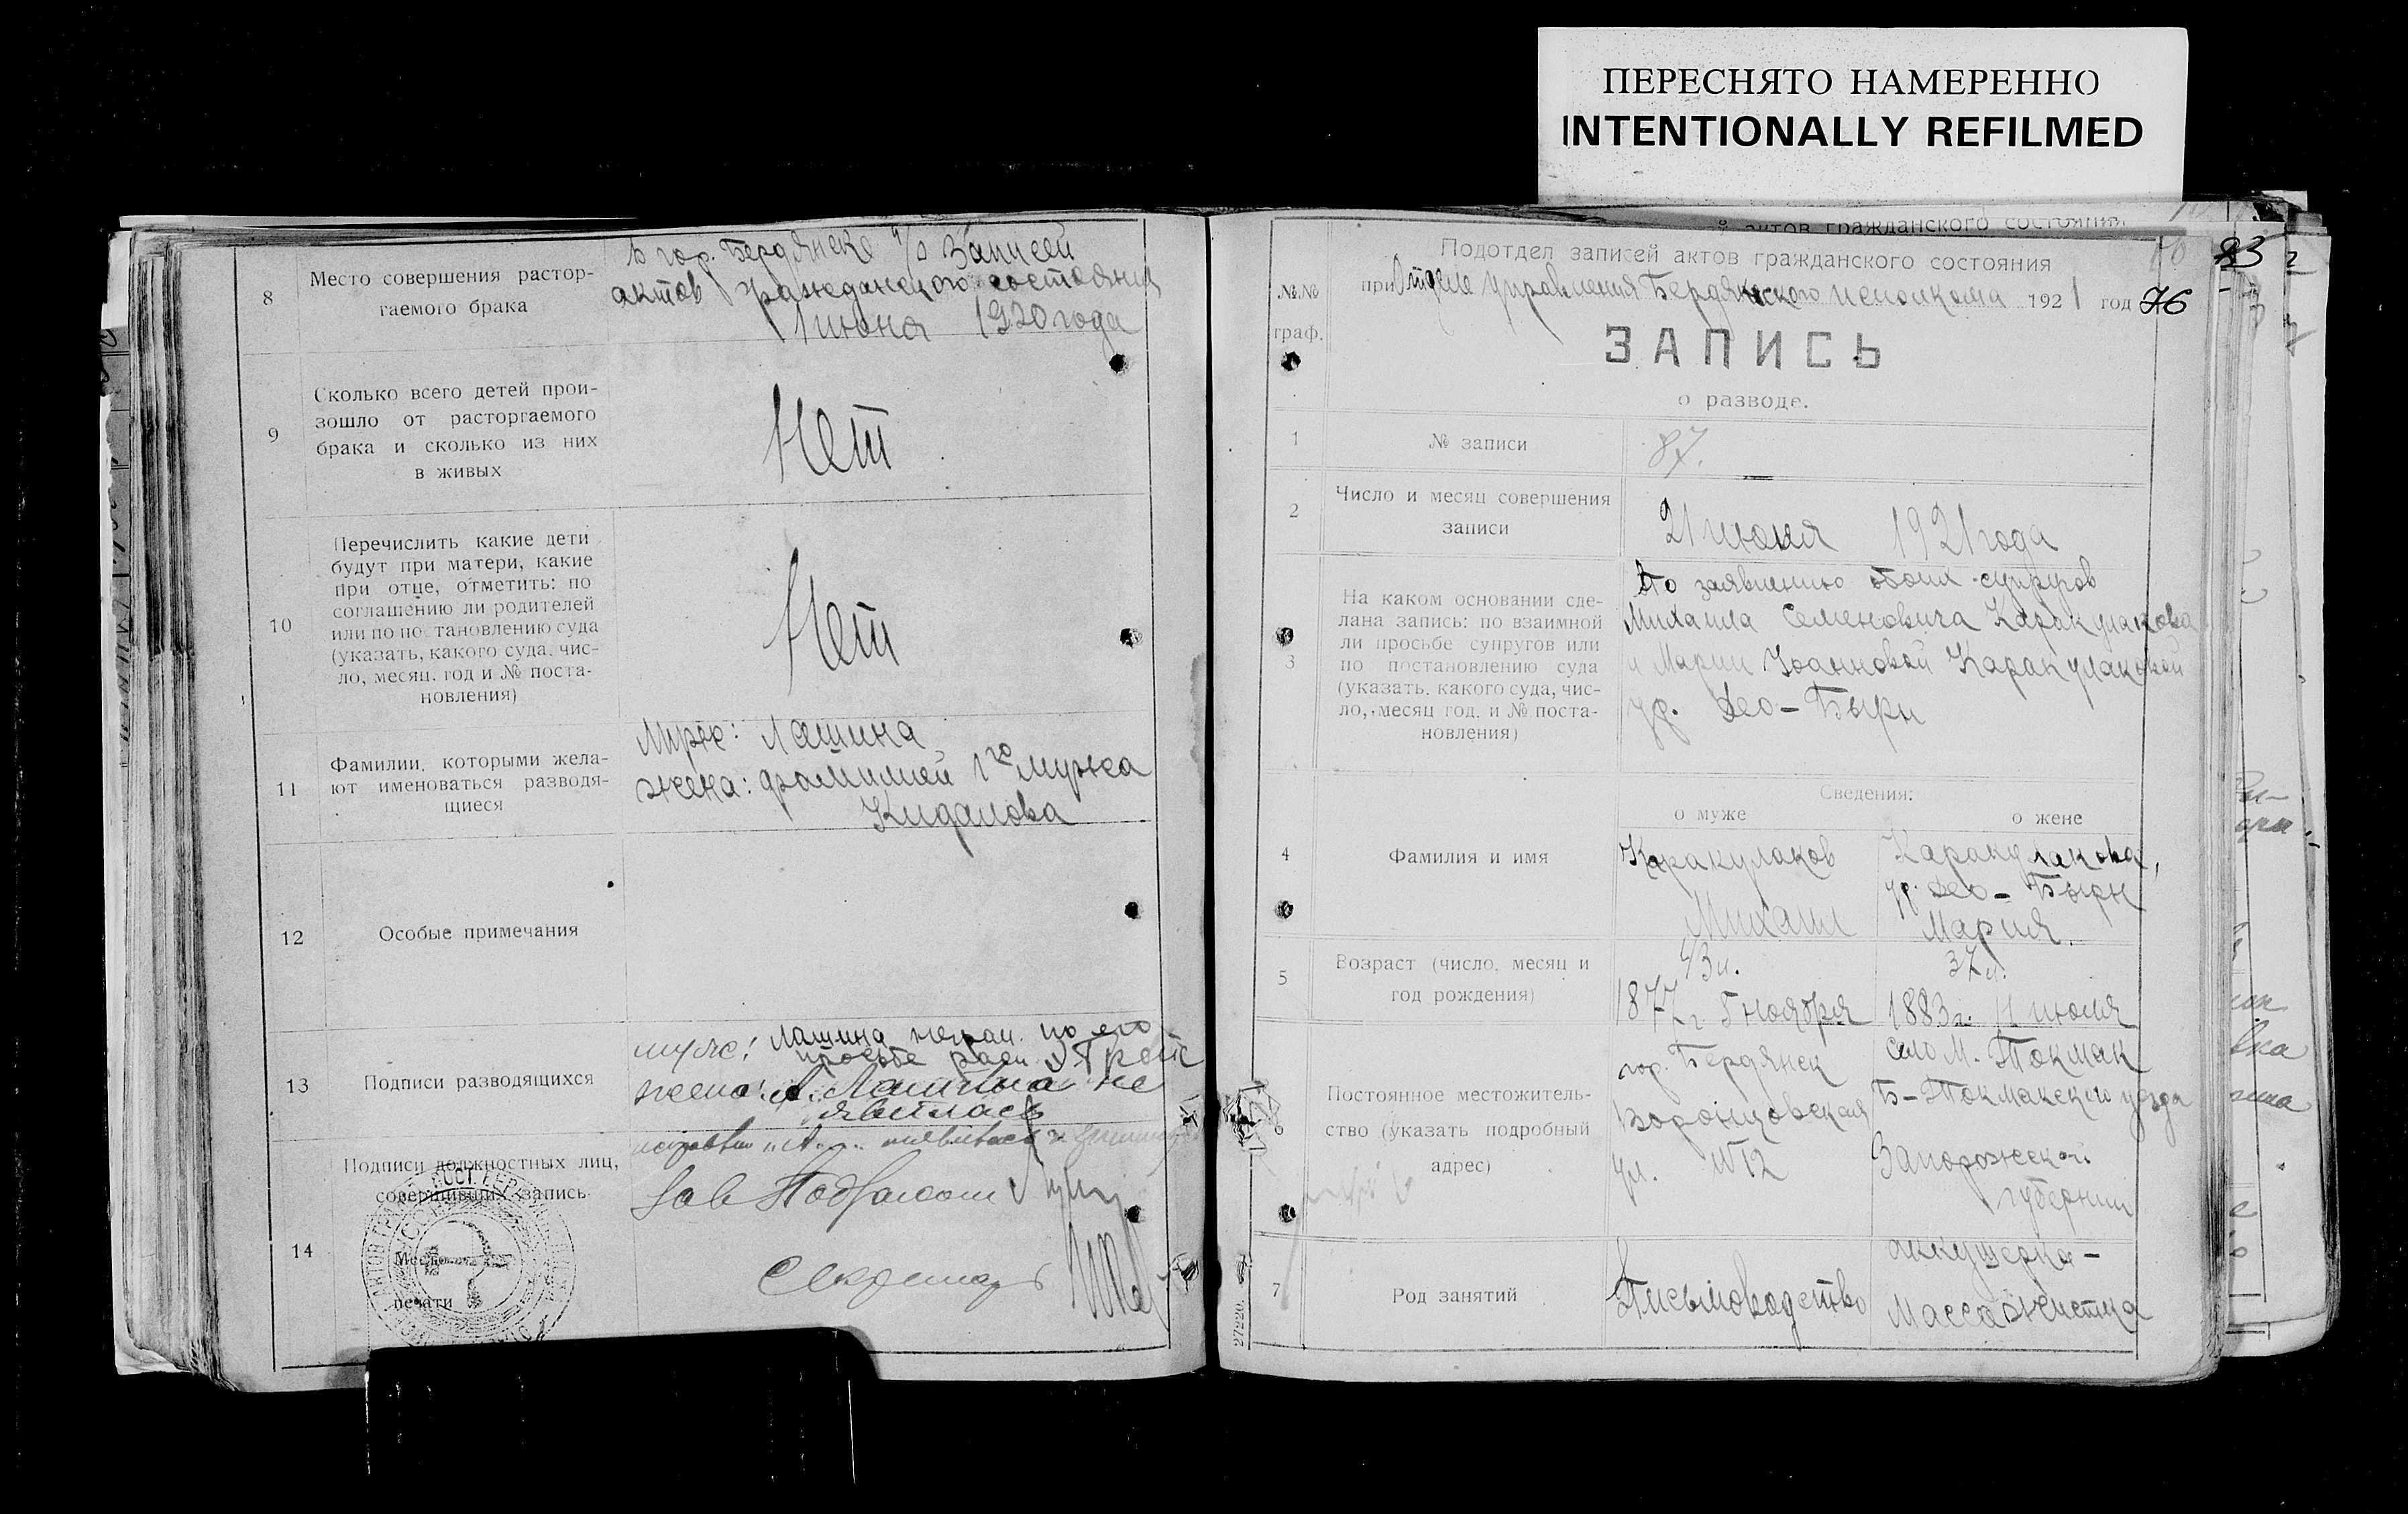 ПЕРЕСНЯТО НАМЕРЕННО
INTENTIONALLY REFILMED
8
Место совершения растор-
гаемого брака
в гор. Бердянске п/о Записей
актов гражданского состояния
1 июня 1920 года
9
Сколько всего детей прои-
зошло от расторгаемого
брака и сколько из них
в живых
Нет
10
Перечислить какие дети
будут при матери, какие
при отце, отметить: по
соглашению ли родителей
или по по тановлению суда
(указать, какого суда, чис-
ло, месяц, год и № поста-
новления)
Нет
11
Фамилии, которыми жела-
ют именоваться разводя-
щиеся
Муж: Лашина
жена: фамилией 1го мужа
Кидалова
12
Особые примечания
13
Подписи разводящихся
муж: Лашина неграм. по его
просьбе расп.
жена: А. Лашина не
явилась
14
Подписи должностных лиц,
совершивших запись
Место
печати
Зав Подотделом
Секретарь
актов гражданского состояния
Подотдел записей актов гражданского состояния
при Отделе Управления Бердянского исполкома 1921 год 76
83
№№
граф.
ЗАПИСЬ
о разводе.
1
№ записи
87.
2
Число и месяц совершения
записи
21 июня 1921 года
3
На каком основании сде-
лана запись: по взаимной
ли просьбе супругов или
по постановлению суда
(указать, какого суда, чис-
ло, месяц год, и № поста-
новления)
По заявлению обоих супругов
Михаила Семеновича Каракулакова
и Марии Иоанновой Каракулаковой
ур. Део-Быри
Сведения:
о муже
о жене
4
Фамилия и имя
Каракулаков
Михаил
Каракулакова,
ур. Део-Быри
Мария.
5
Возраст (число, месяц и
год рождения)
43 л.
1877 г. 5 ноября
37 л.
1883 г. 11 июля
6
Постоянное местожитель-
ство (указать подробный
адрес)
гор. Бердянск
Воронцовская
ул. №12
село М. Токмак
Б-Токмакского уезда
Запорожской
губернии
7
Род занятий
Письмоводство
аккушерка-
массажистка
27220.